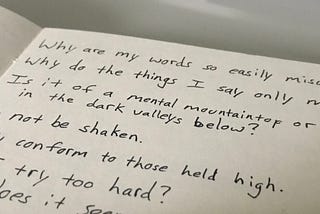 Why are my words so easily
Why do the things I say only
Is it of a mental mountaintop or
in the dark valleys below?
not be shaken.
conform to those held high.
try too hard?
does it